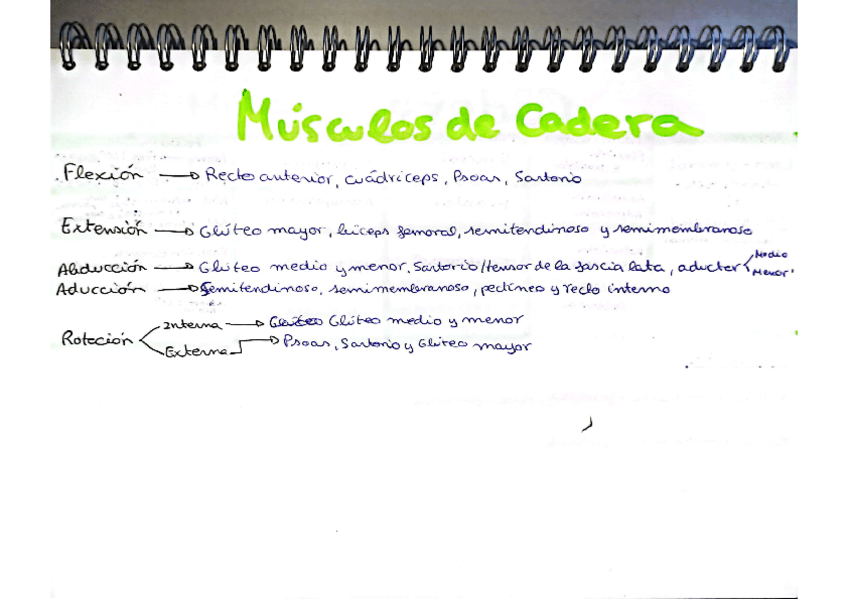 Músculos de Cadera
Flexión → Recto anterior, cuádriceps, Psoas, Sartorio
Extensión → Glúteo mayor, bíceps femoral, semitendinoso y semimembranoso
Abducción → Glúteo medio y menor, Sartorio/tensor de la fascia lata, aducter < Medio
Menor
Aducción → Semitendinoso, semimembranoso, pectíneo y recto interno
Rotación < Interna → Glúteo Glúteo medio y menor
Externa → Psoas, Sartorio y Glúteo mayor